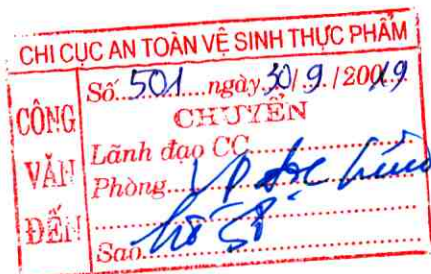 CHI CỤC AN TOÀN VỆ SINH THỰC PHẨM
CÔNG VĂN ĐẾN
Số 501 ngày 30/9/20019
CHUYỂN
Lãnh đạo CC
Phòng VP
Sao